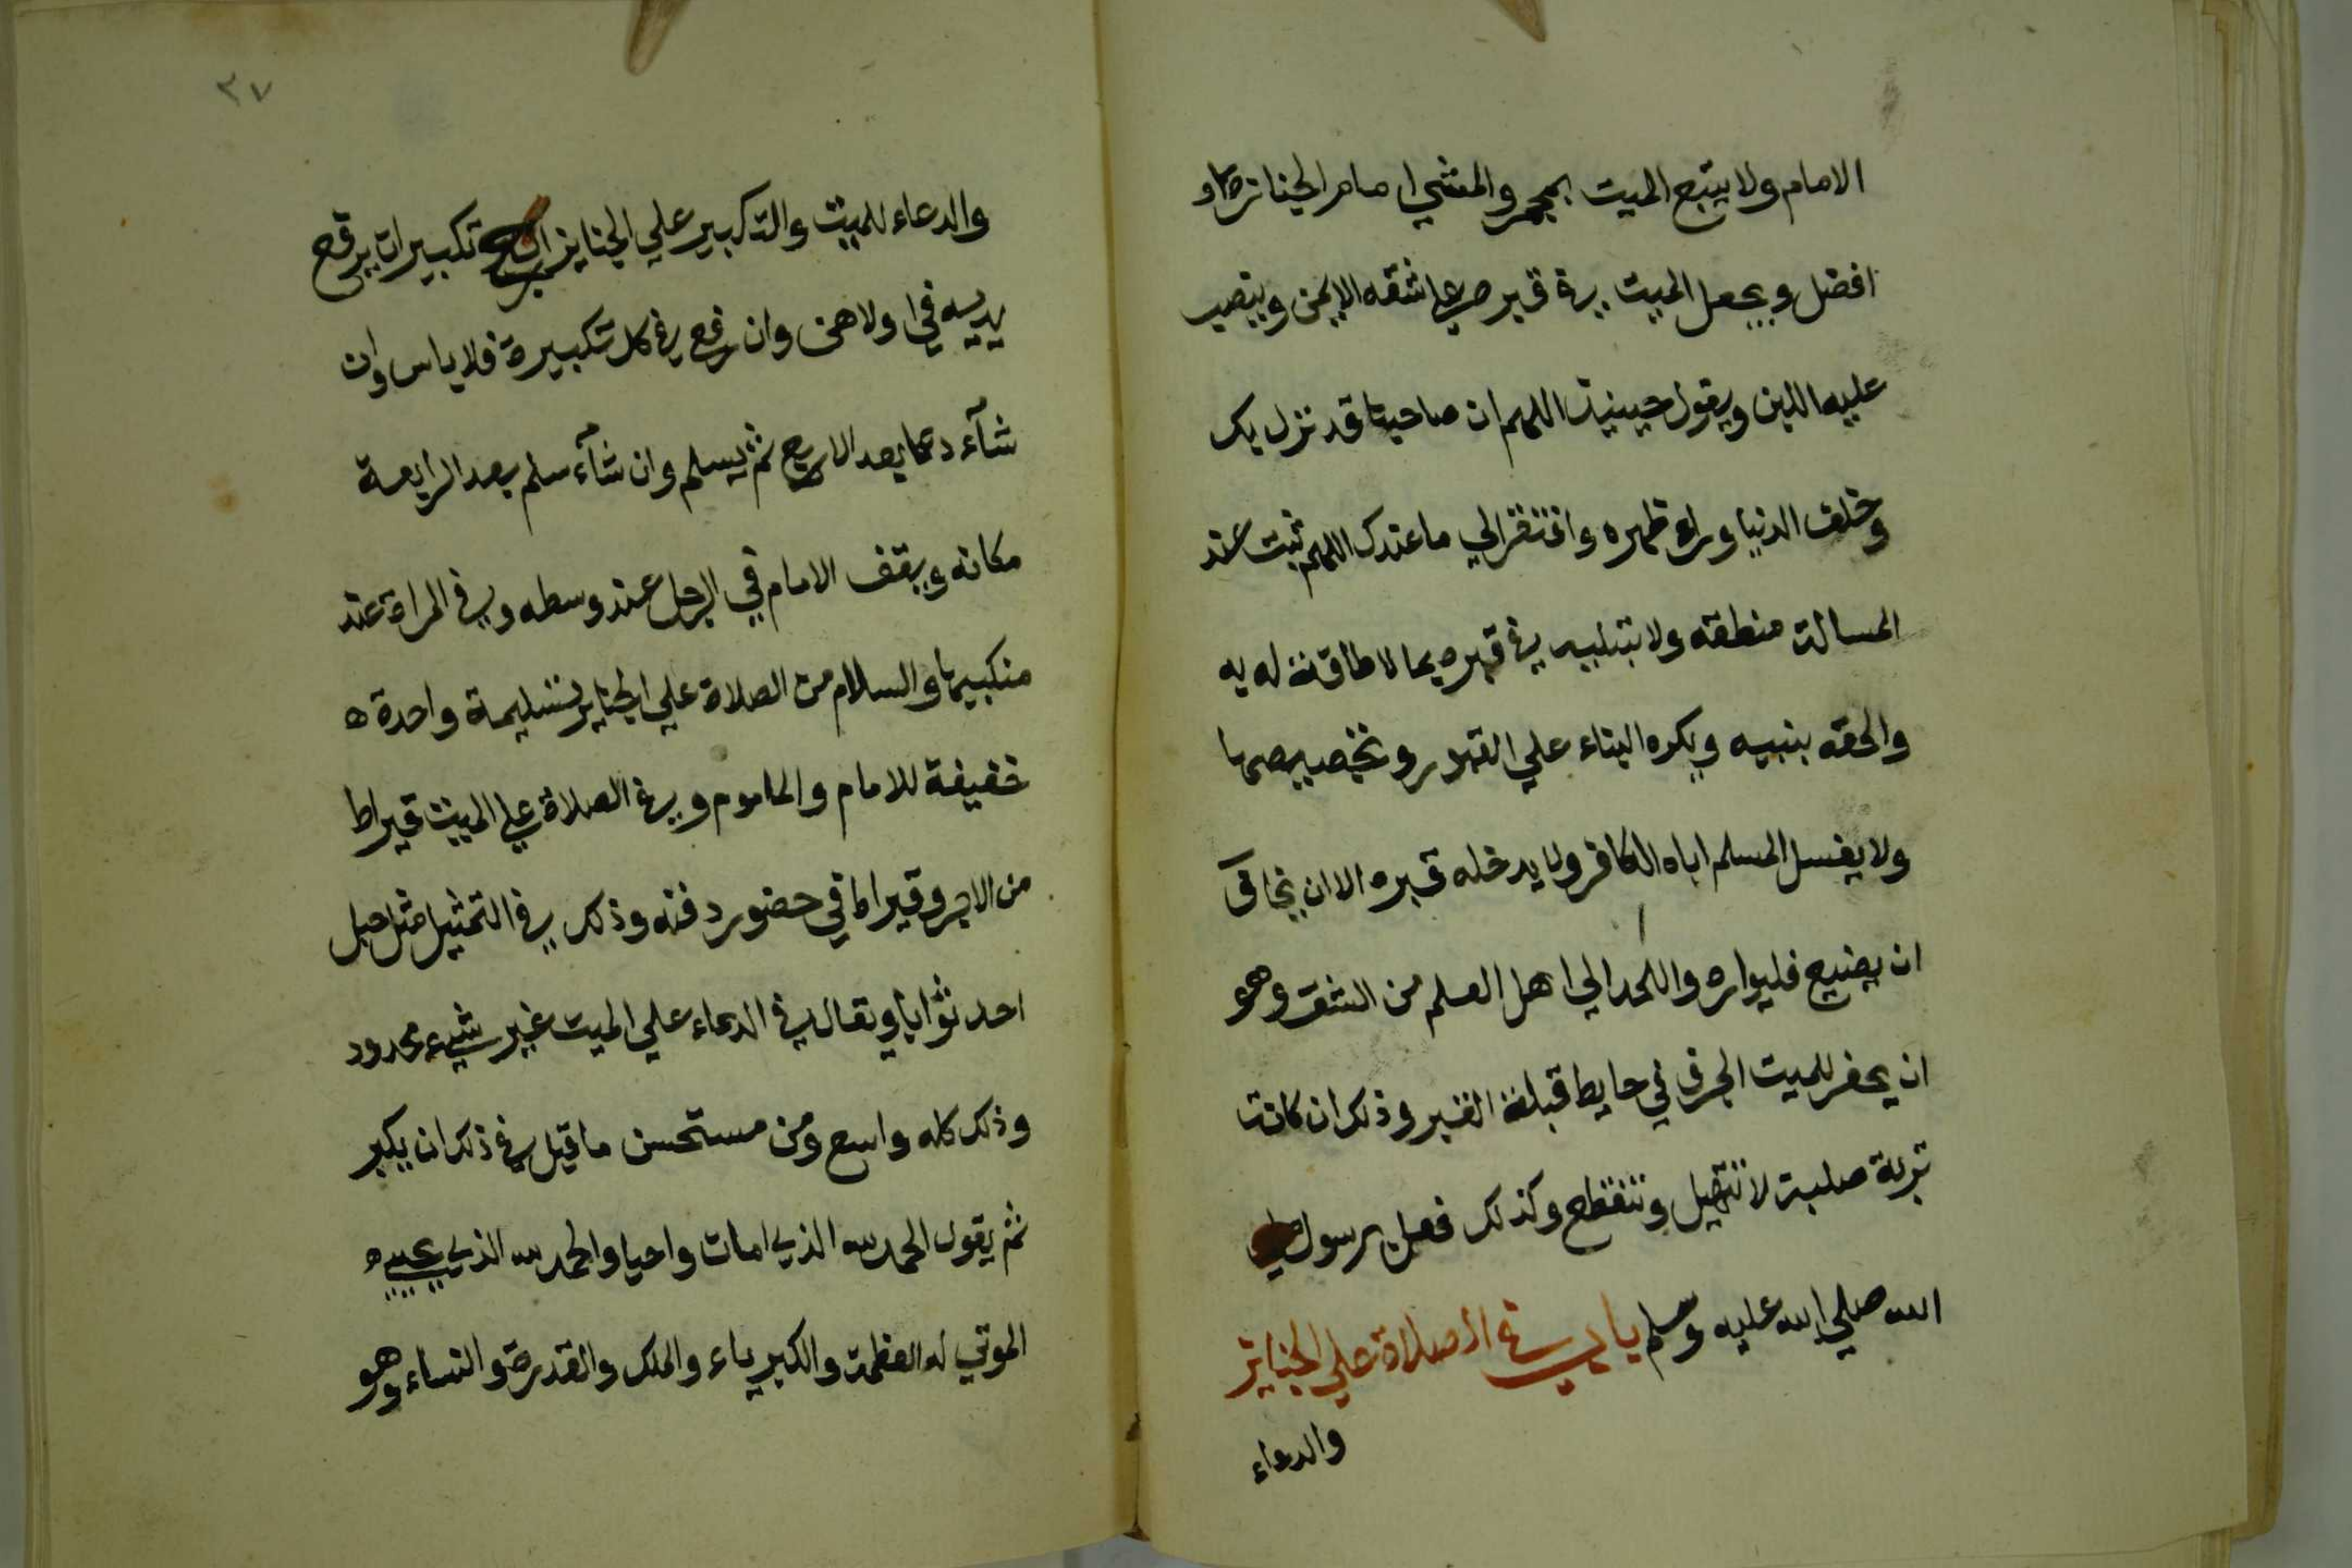 الامام ولا يتبع الميت بمجمر والمشي امام الجنازة
افضل ويجعل الميت في قبره علي شقه الايمن وينصب
عليه اللبن ويقول حينيذ اللهم ان صاحبنا قد نزل بك
وخلف الدنيا وراء ظهره وافتقر الي ما عندك اللهم ثبت عند
المسالة منطقه ولا تبتليه في قبره بما لا طاقة له به
والحقه بنبيه ويكره البناء علي القبور وتخصيصها
ولا يغسل المسلم اباه الكافر ولا يدخله قبره الا ان يخاف
ان يضيع فليواره واللحد الي اهل العلم من الشق وهو
ان يحفر للميت الجرف في حايط قبلة القبر وذلك ان كانت
تربة صلبة لا تتهيل وتتقطع وكذلك فعل برسول
الله صلي الله عليه وسلم باب في الصلاة علي الجنايز
والدعاء
٣٧
والدعاء للميت والتكبير علي الجنايز اربع تكبيرات يرفع
يديه في اولاهن وان رفع في كل تكبيرة فلا باس وان
شآء دعا بعد الاربع ثم يسلم وان شآء سلم بعد الرابعة
مكانه ويقف الامام في الرجل عند وسطه وفي المراة عند
منكبيها والسلام من الصلاة علي الجنايز تسليمة واحدة
خفيفة للامام والماموم وفي الصلاة علي الميت قيراط
من الاجر وقيراط في حضور دفنه وذلك في التمثيل مثل جبل
احد ثوابا ويقال في الدعاء علي الميت غير شيء محدود
وذلك كله واسع ومن مستحسن ما قيل في ذلك ان يكبر
ثم يقول الحمد لله الذي امات واحيا والحمد لله الذي يحيي
الموتي له العظمة والكبرياء والملك والقدرة والنساء وهو